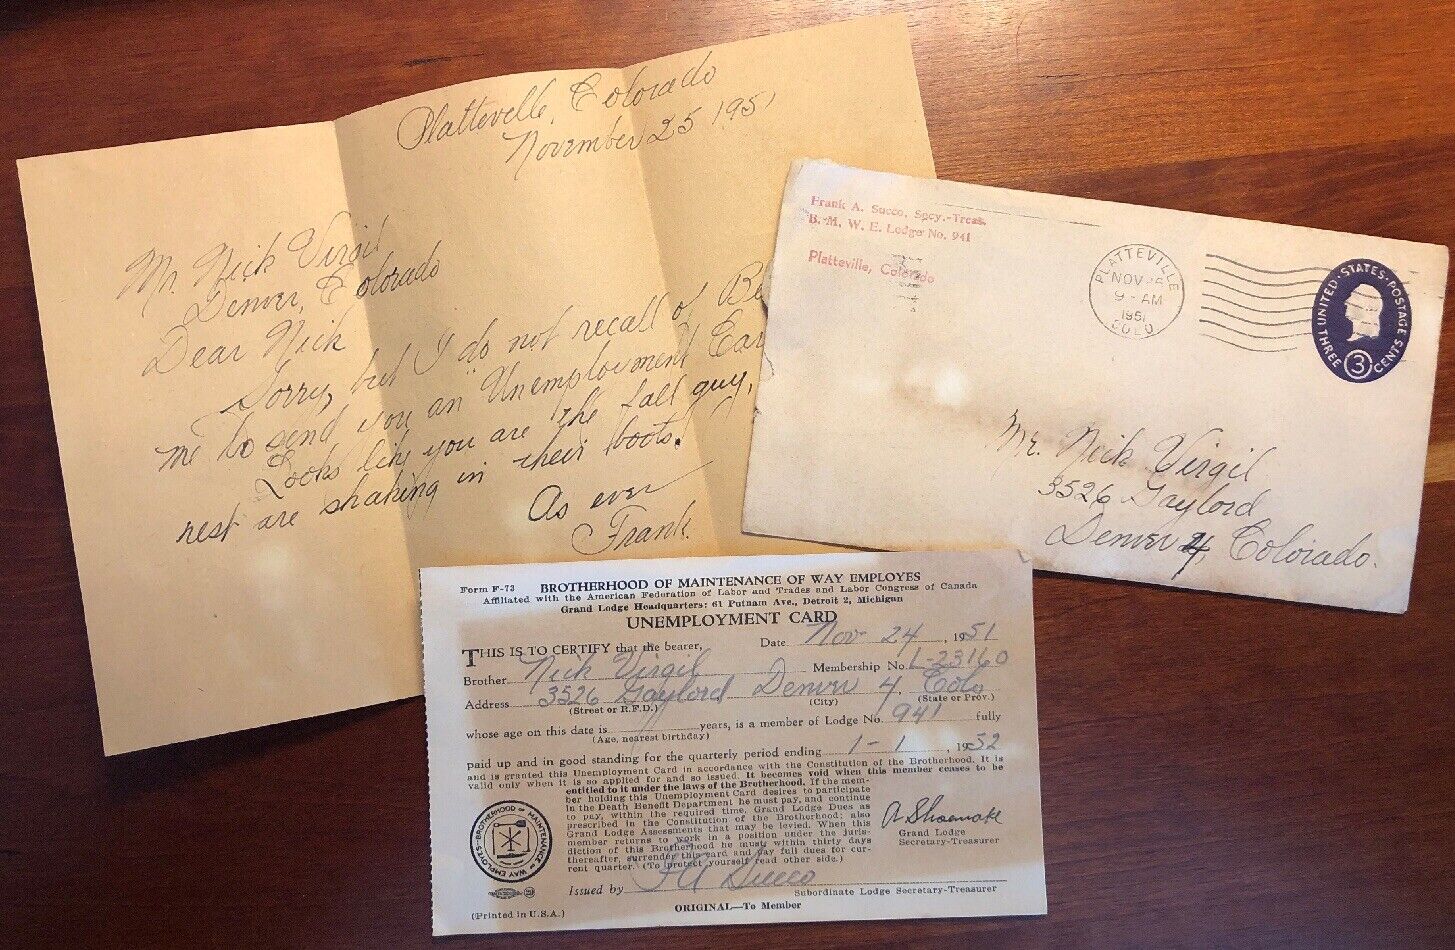 Platteville, Colorado
November 25 1951
Mr. Nick Virgil
Denver, Colorado
Dear Nick
Sorry, but I do not recall of Be
me to send you an "Unemployment Car
Looks like you are the fall guy,
rest are shaking in their boots.
As ever
Frank.
Frank A. Succo, Secy.-Treas.
B. M. W. E. Lodge No. 941
Platteville, Colorado
PLATTEVILLE
NOV 26
9 - AM
1951
COLO
UNITED STATES POSTAGE
THREE 3 CENTS
Mr. Nick Virgil
3526 Gaylord
Denver 4, Colorado.
Form F-73 BROTHERHOOD OF MAINTENANCE OF WAY EMPLOYES
Affiliated with the American Federation of Labor and Trades and Labor Congress of Canada
Grand Lodge Headquarters: 61 Putnam Ave., Detroit 2, Michigan
UNEMPLOYMENT CARD
Date Nov 24, 1951
THIS IS TO CERTIFY that the bearer,
Brother Nick Virgil Membership No. L-23160
Address 3526 Gaylord Denver 4, Colo
(Street or R.F.D.) (City) (State or Prov.)
whose age on this date is years, is a member of Lodge No. 941 fully
(Age, nearest birthday)
paid up and in good standing for the quarterly period ending 1-1, 1952
and is granted this Unemployment Card in accordance with the Constitution of the Brotherhood. It is
valid only when it is so applied for and so issued. It becomes void when this member ceases to be
entitled to it under the laws of the Brotherhood. If the mem-
ber holding this Unemployment Card desires to participate
in the Death Benefit Department he must pay, and continue
to pay, within the required time, Grand Lodge Dues as
prescribed in the Constitution of the Brotherhood; also
Grand Lodge Assessments that may be levied. When this
member returns to work in a position under the juris-
diction of this Brotherhood he must within thirty days
thereafter, surrender this card and pay full dues for cur-
rent quarter. (To protect yourself read other side.)
A Shoemake
Grand Lodge
Secretary-Treasurer
BROTHERHOOD OF MAINTENANCE OF WAY EMPLOYES
Issued by FA Succo
Subordinate Lodge Secretary-Treasurer
(Printed in U.S.A.)
ORIGINAL—To Member